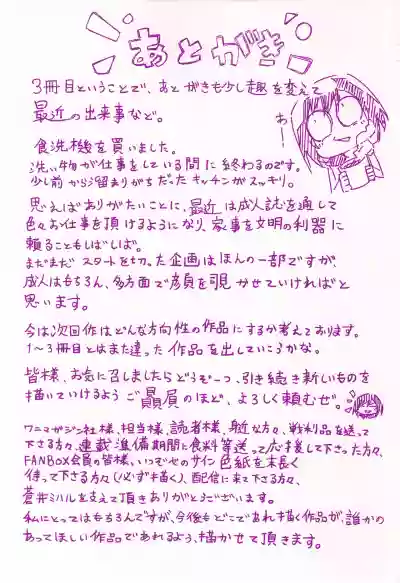 あとがき
3冊目ということで、あとがきも少し趣を変えて
最近の出来事など。
あ
食洗機を買いました。
洗い物が仕事をしている間に終わるのです。
少し前から溜まりがちだったキッチンがスッキリ。
思えばありがたいことに、最近は成人誌を通して
色々お仕事を頂けるようになり、家事を文明の利器に
頼ることもしばしば。
まだまだスタートを切った企画はほんの一部ですが、
成人はもちろん、多方面で顔を覗かせていければと
思います。
今は次回作はどんな方向性の作品にするか考えております。
1～3冊目とはまた違った作品を出していこうかな。
皆様、お気に召しましたらどうぞ一つ、引き続き新しいものを
描いていけるようご贔屓のほど、よろしく頼むぜ。
ワニマガジン社様、担当様、読者様、身近な方々、戦利品を送って
下さる方々、連載準備期間に食料等送って応援して下さった方々、
FANBOX会員の皆様、いつぞやのサイン色紙を末長く
待って下さる方々(必ず描く)、配信に来て下さる方、
蒼井ミハルを支えて頂きありがとうございます。
私にとってはもちろんですが、今後もどこであれ描く作品が、誰かの
あってほしい作品であれるよう、描かせて頂きます。